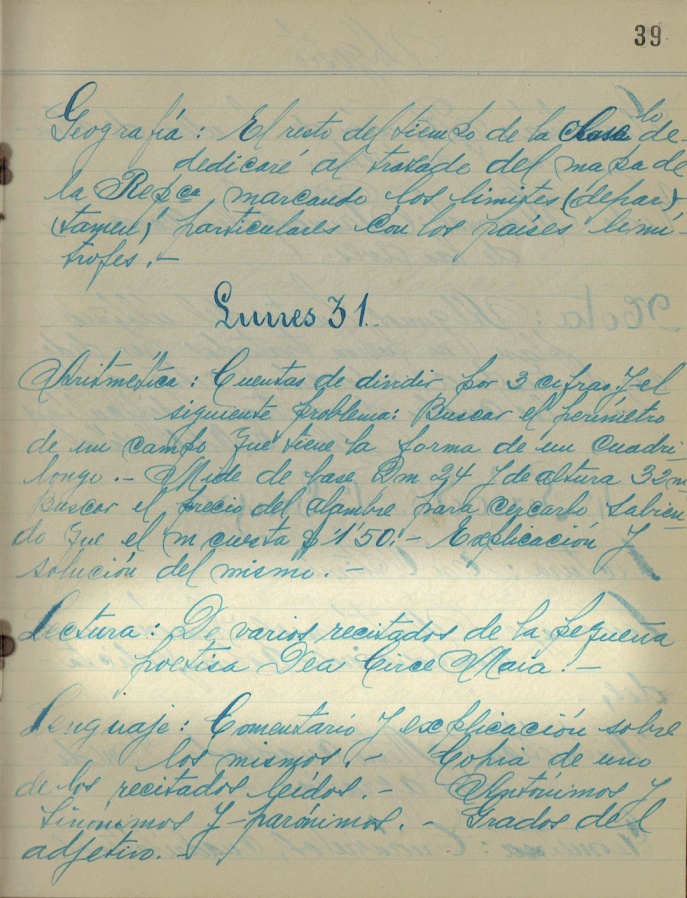 39
Geografía: El resto del tiempo de la clase lo de-
dedicaré al trazado del mapa de
la Repca marcando los límites (depar)
(tamen) particulares con los países limí-
trofes.-
Lunes 31.
Aritmética: Cuentas de dividir por 3 cifras y el
siguiente problema: Buscar el perímetro
de un campo que tiene la forma de un cuadri-
longo.- Mide de base Dm 24 y de altura 32m
Buscar el precio del alambre para cercarlo sabien-
do que el m cuesta $ 1'50.- Explicación y
solución del mismo.-
Lectura: De varios recitados de la pequeña
poetisa Dea Circe Maia.-
Lenguaje: Comentario y explicación sobre
los mismos.- Copia de uno
de los recitados leídos.- Antónimos y
sinónimos y parónimos.- Grados del
adjetivo.-